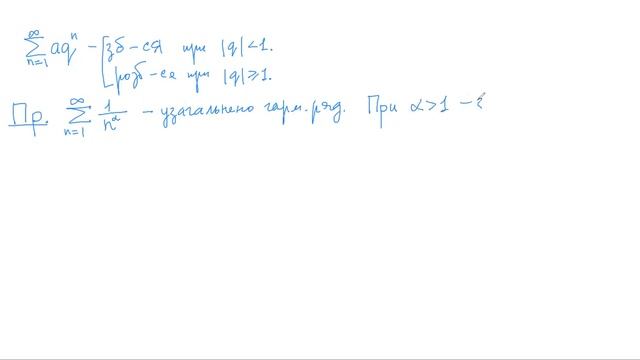 ∑_{n=1}^{∞} aq^n – [зб-ся при |q|<1.
розб-ся при |q|≥1.
Пр. ∑_{n=1}^{∞} 1/n^α – узагальнено гарм. ряд. При α>1 – з